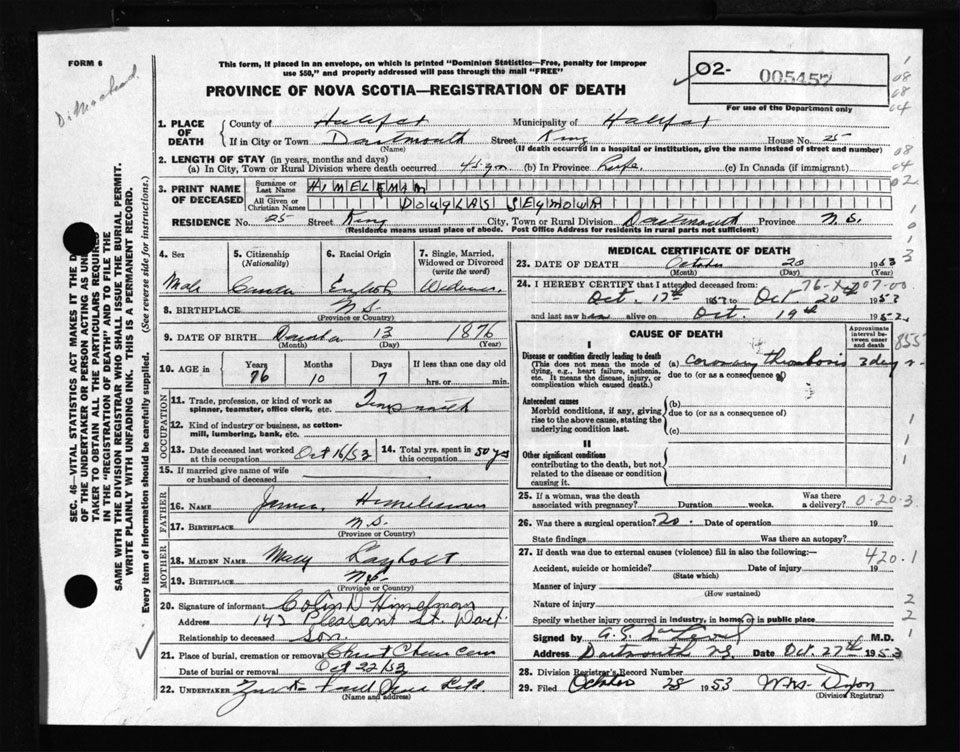 FORM 6
This form, if placed in an envelope, on which is printed "Dominion Statistics—Free, penalty for improper
use $50," and properly addressed will pass through the mail "FREE"
02- 005457
For use of the Department only
PROVINCE OF NOVA SCOTIA—REGISTRATION OF DEATH
1. PLACE OF DEATH
County of Halifax Municipality of Halifax
If in City or Town Dartmouth Street King House No. 25
(Name) (If death occurred in a hospital or institution, give the name instead of street and number)
2. LENGTH OF STAY (in years, months and days)
(a) In City, Town or Rural Division where death occurred 45 yrs (b) In Province Life (c) In Canada (if immigrant)
3. PRINT NAME OF DECEASED
Surname or Last Name HIMELEMAN
All Given or Christian Names DOUGLAS SEYMOUR
RESIDENCE No. 25 Street King City, Town or Rural Division Dartmouth Province N.S.
(Residence means usual place of abode. Post Office Address for residents in rural parts not sufficient)
SEC. 46—VITAL STATISTICS ACT MAKES IT THE
OF THE UNDERTAKER OR PERSON ACTING AS UNDER
TAKER TO OBTAIN ALL THE PARTICULARS REQUIRED
IN THE "REGISTRATION OF DEATH" AND TO FILE THE
SAME WITH THE DIVISION REGISTRAR WHO SHALL ISSUE THE BURIAL PERMIT.
WRITE PLAINLY WITH UNFADING INK. THIS IS A PERMANENT RECORD.
Every item of information should be carefully supplied. (See reverse side for instructions.)
4. Sex Male
5. Citizenship (Nationality) Canada
6. Racial Origin English
7. Single, Married, Widowed or Divorced (write the word) Widower
8. BIRTHPLACE N.S.
(Province or Country)
9. DATE OF BIRTH 13 1876
(Month) (Day) (Year)
10. AGE in Years 76 Months 10 Days 7 If less than one day old
hrs. or min.
OCCUPATION
11. Trade, profession, or kind of work as spinner, teamster, office clerk, etc. Tinsmith
12. Kind of industry or business, as cotton-mill, lumbering, bank, etc.
13. Date deceased last worked at this occupation Oct 16/53
14. Total yrs. spent in this occupation 50 yrs
15. If married give name of wife or husband of deceased
FATHER
16. NAME James Himelman
17. BIRTHPLACE N.S.
(Province or Country)
MOTHER
18. MAIDEN NAME Mary
19. BIRTHPLACE N.S.
(Province or Country)
20. Signature of informant Colin D Himelman
Address 142 Pleasant St. Dart.
Relationship to deceased Son.
21. Place of burial, cremation or removal Christ Church Cem
Date of burial or removal Oct 22/53
22. UNDERTAKER
(Name and address)
MEDICAL CERTIFICATE OF DEATH
23. DATE OF DEATH October 20 1953
(Month) (Day) (Year)
24. I HEREBY CERTIFY that I attended deceased from:
Oct. 17th 1953 to Oct. 20th 1953
and last saw him alive on Oct. 19th 1953
CAUSE OF DEATH
Approximate interval between onset and death
I
Disease or condition directly leading to death
(This does not mean the mode of dying, e.g., heart failure, asthenia, etc. It means the disease, injury, or complication which caused death.)
(a) coronary thrombosis 3 days
due to (or as a consequence of)
Antecedent causes
Morbid conditions, if any, giving rise to the above cause, stating the underlying condition last.
(b)
due to (or as a consequence of)
(c)
II
Other significant conditions
contributing to the death, but not related to the disease or condition causing it.
855
25. If a woman, was the death associated with pregnancy? Duration weeks. Was there a delivery?
0-20-3
26. Was there a surgical operation? Date of operation 19
State findings Was there an autopsy?
27. If death was due to external causes (violence) fill in also the following:—
420.1
Accident, suicide or homicide? Date of injury 19
(State which)
Manner of injury
(How sustained)
Nature of injury
Specify whether injury occurred in industry, in home, or in public place
Signed by M.D.
Address Dartmouth N.S. Date Oct. 27th 1953
28. Division Registrar's Record Number
29. Filed October 28 1953 Wm. Dixon
(Division Registrar)